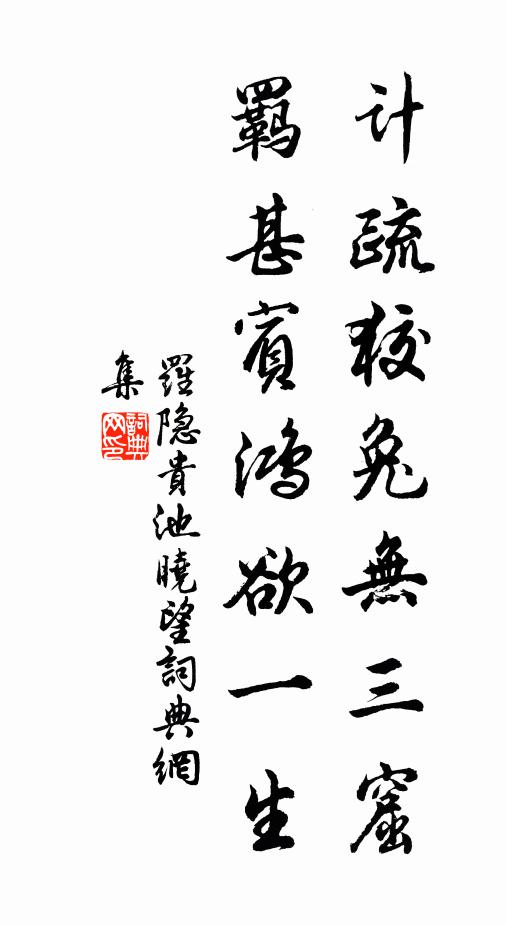 計疏狡兔無三窟
羈甚賓鴻欲一生
羅隐貴池曉望詞典網
集
詞典网印